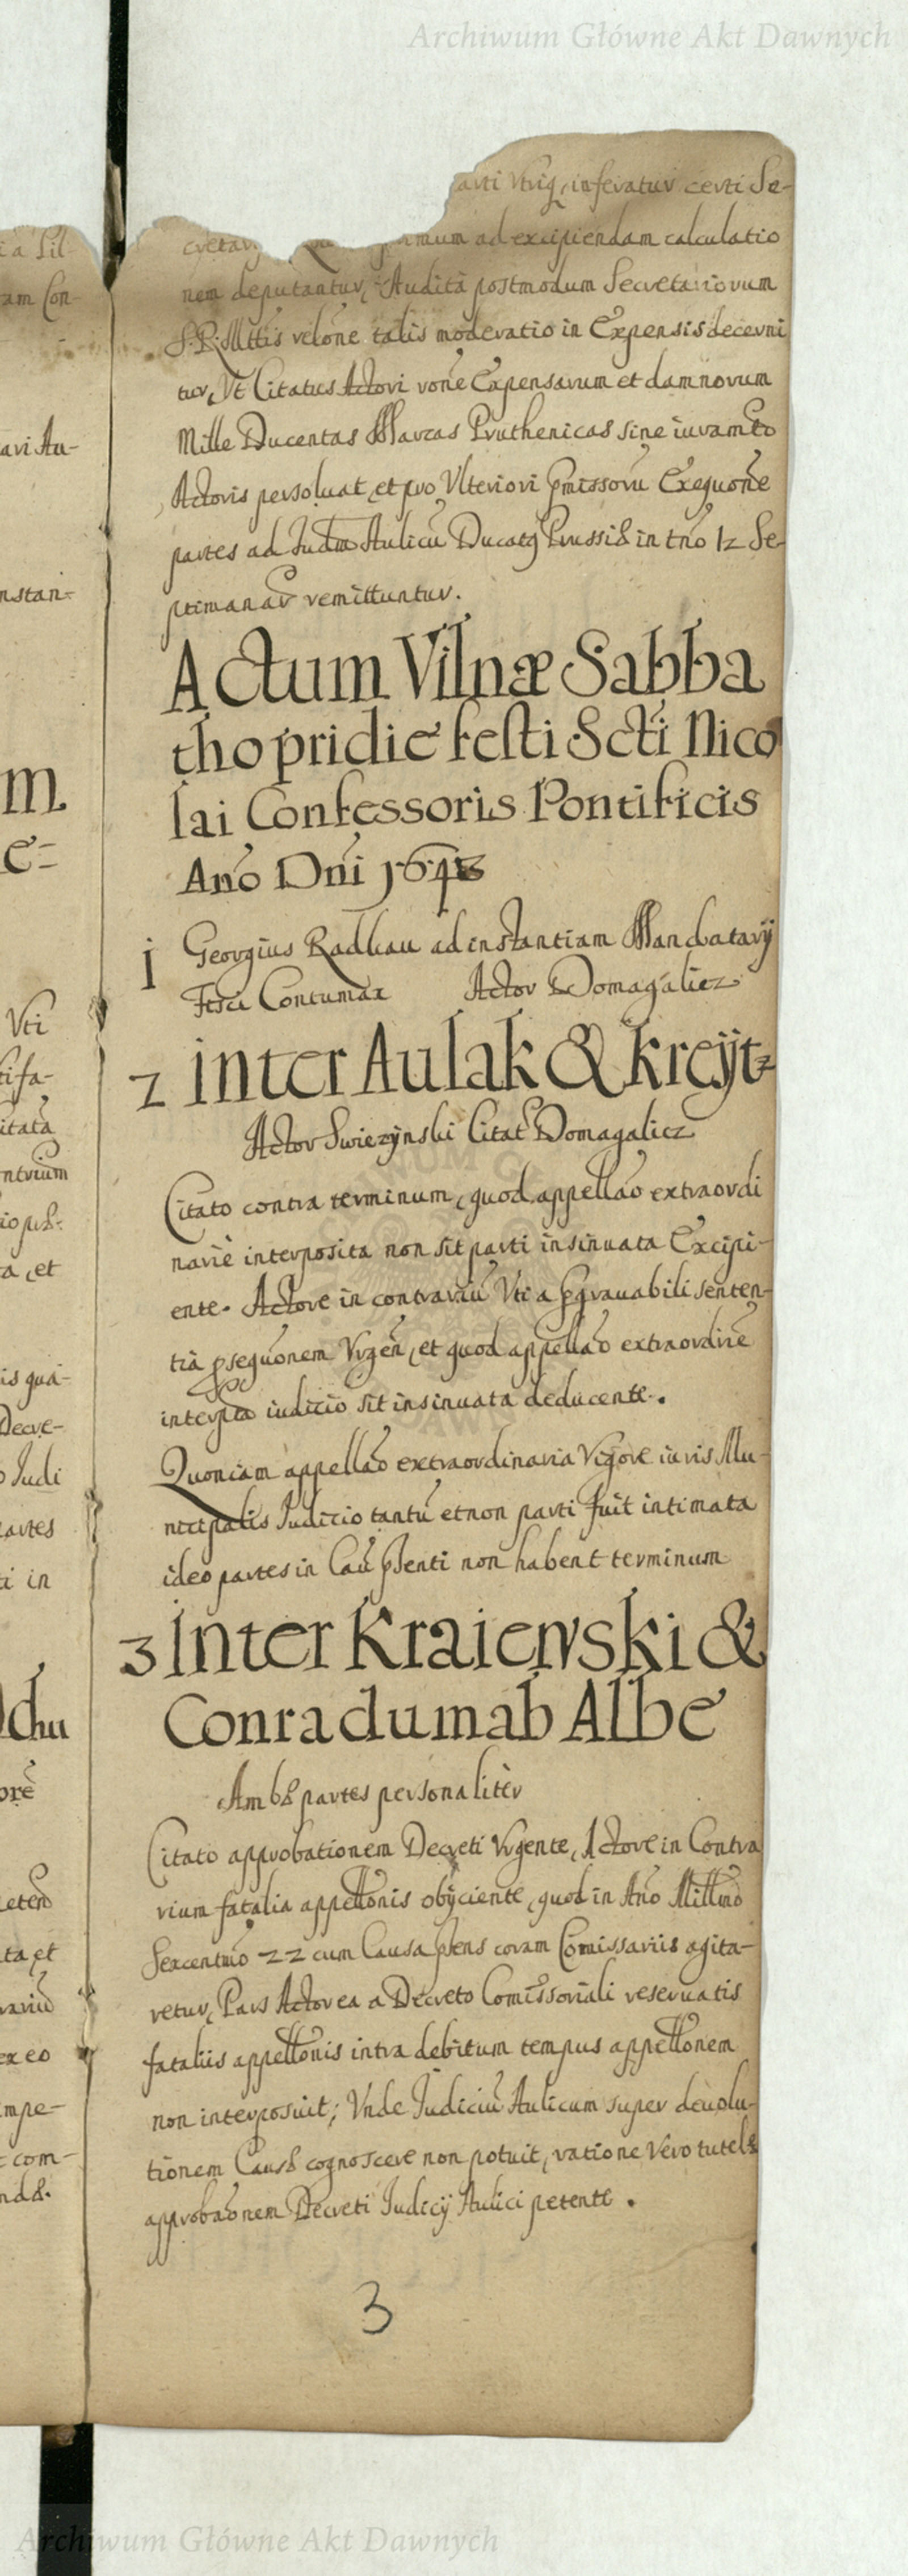 Archiwum Główne Akt Dawnych
arti Vtriq, inferatur certi Se-
cretar mum ad excipiendam calculatio
nem deputantur, Audita postmodum Secretariorum
S.R.Mttis relõne talis moderatio in Expensis decerni
tur, Vt Citatus Actori rone Expensarum et damnorum
Mille Ducentas Marcas Pruthenicas sine iuramto
Actoris persoluat, et pro Vlteriori pmissoru Exequone
partes ad Iudm Aulicu Ducatq Prussiæ in tno 12 Se-
ptimanar remittuntur.
Actum Vilnæ Sabba
tho pridie festi Scti Nico
lai Confessoris Pontificis
Ano Dni
1 Georgius Radkau ad instantiam Mandatarij
Fisci Contumax Actor Domagalicz
2 inter Aulak & Kreijtz
Actor Swiezijnski Citat Domagalicz
Citato contra terminum, quod appellao extraordi
nariè interposita non sit parti insinuata Excipi-
ente. Actore in contrariu Vti a pgrauabili senten-
tia psequonem Vrgen, et quod appellao extraordine
interpta iudicio sit insinuata deducente.
Quoniam appellao extraordinaria Vigore iuris Mu-
nicipalis Iudicio tantu et non parti fuit intimata
ideo partes in Cau psenti non habent terminum
3 Inter Kraiewski &
Conradum ab Albe
Ambæ partes personaliter
Citato approbationem Decreti Vrgente, Actore in Contra
rium fatalia appellonis obijciente, quod in Ano Millmo
Sexcentmo 22 cum Causa psens coram Comissariis agita-
retur, Pars Actorea a Decreto Comissoriali reseruatis
fataliis appellonis intra debitum tempus appellonem
non interposuit; Vnde Iudiciu Aulicum super deuolu-
tionem Causæ cognoscere non potuit, ratione Vero tutelæ
approbaonem Decreti Iudicij Aulici petente.
3
Archiwum Główne Akt Dawnych